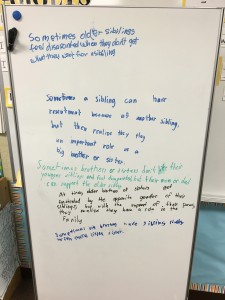 Sometimes older siblings
feel disappointed when they don't get
what they want for a sibling
Sometimes a sibling can have
resentment because of another sibling,
but then realize they play
an important role as a
big brother or sister.
Sometimes brothers or sisters don't their
younger siblings and feel disappointed but their mom or dad
can support the older sibling
At times older brothers or sisters get
by the opposite gender of their
siblings but with the support of their parents,
they realize they have a role in the
family.
Sometimes